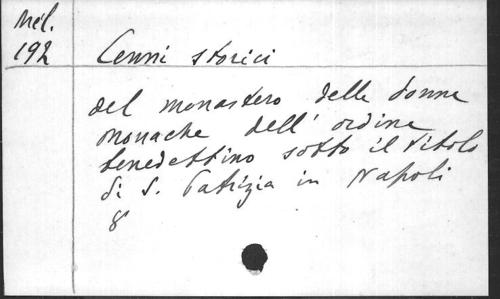 Mél.
192
Cenni storici
del monastero delle donne
monache dell' ordine
benedettino sotto il titolo
di S. Patrizia in Napoli
8